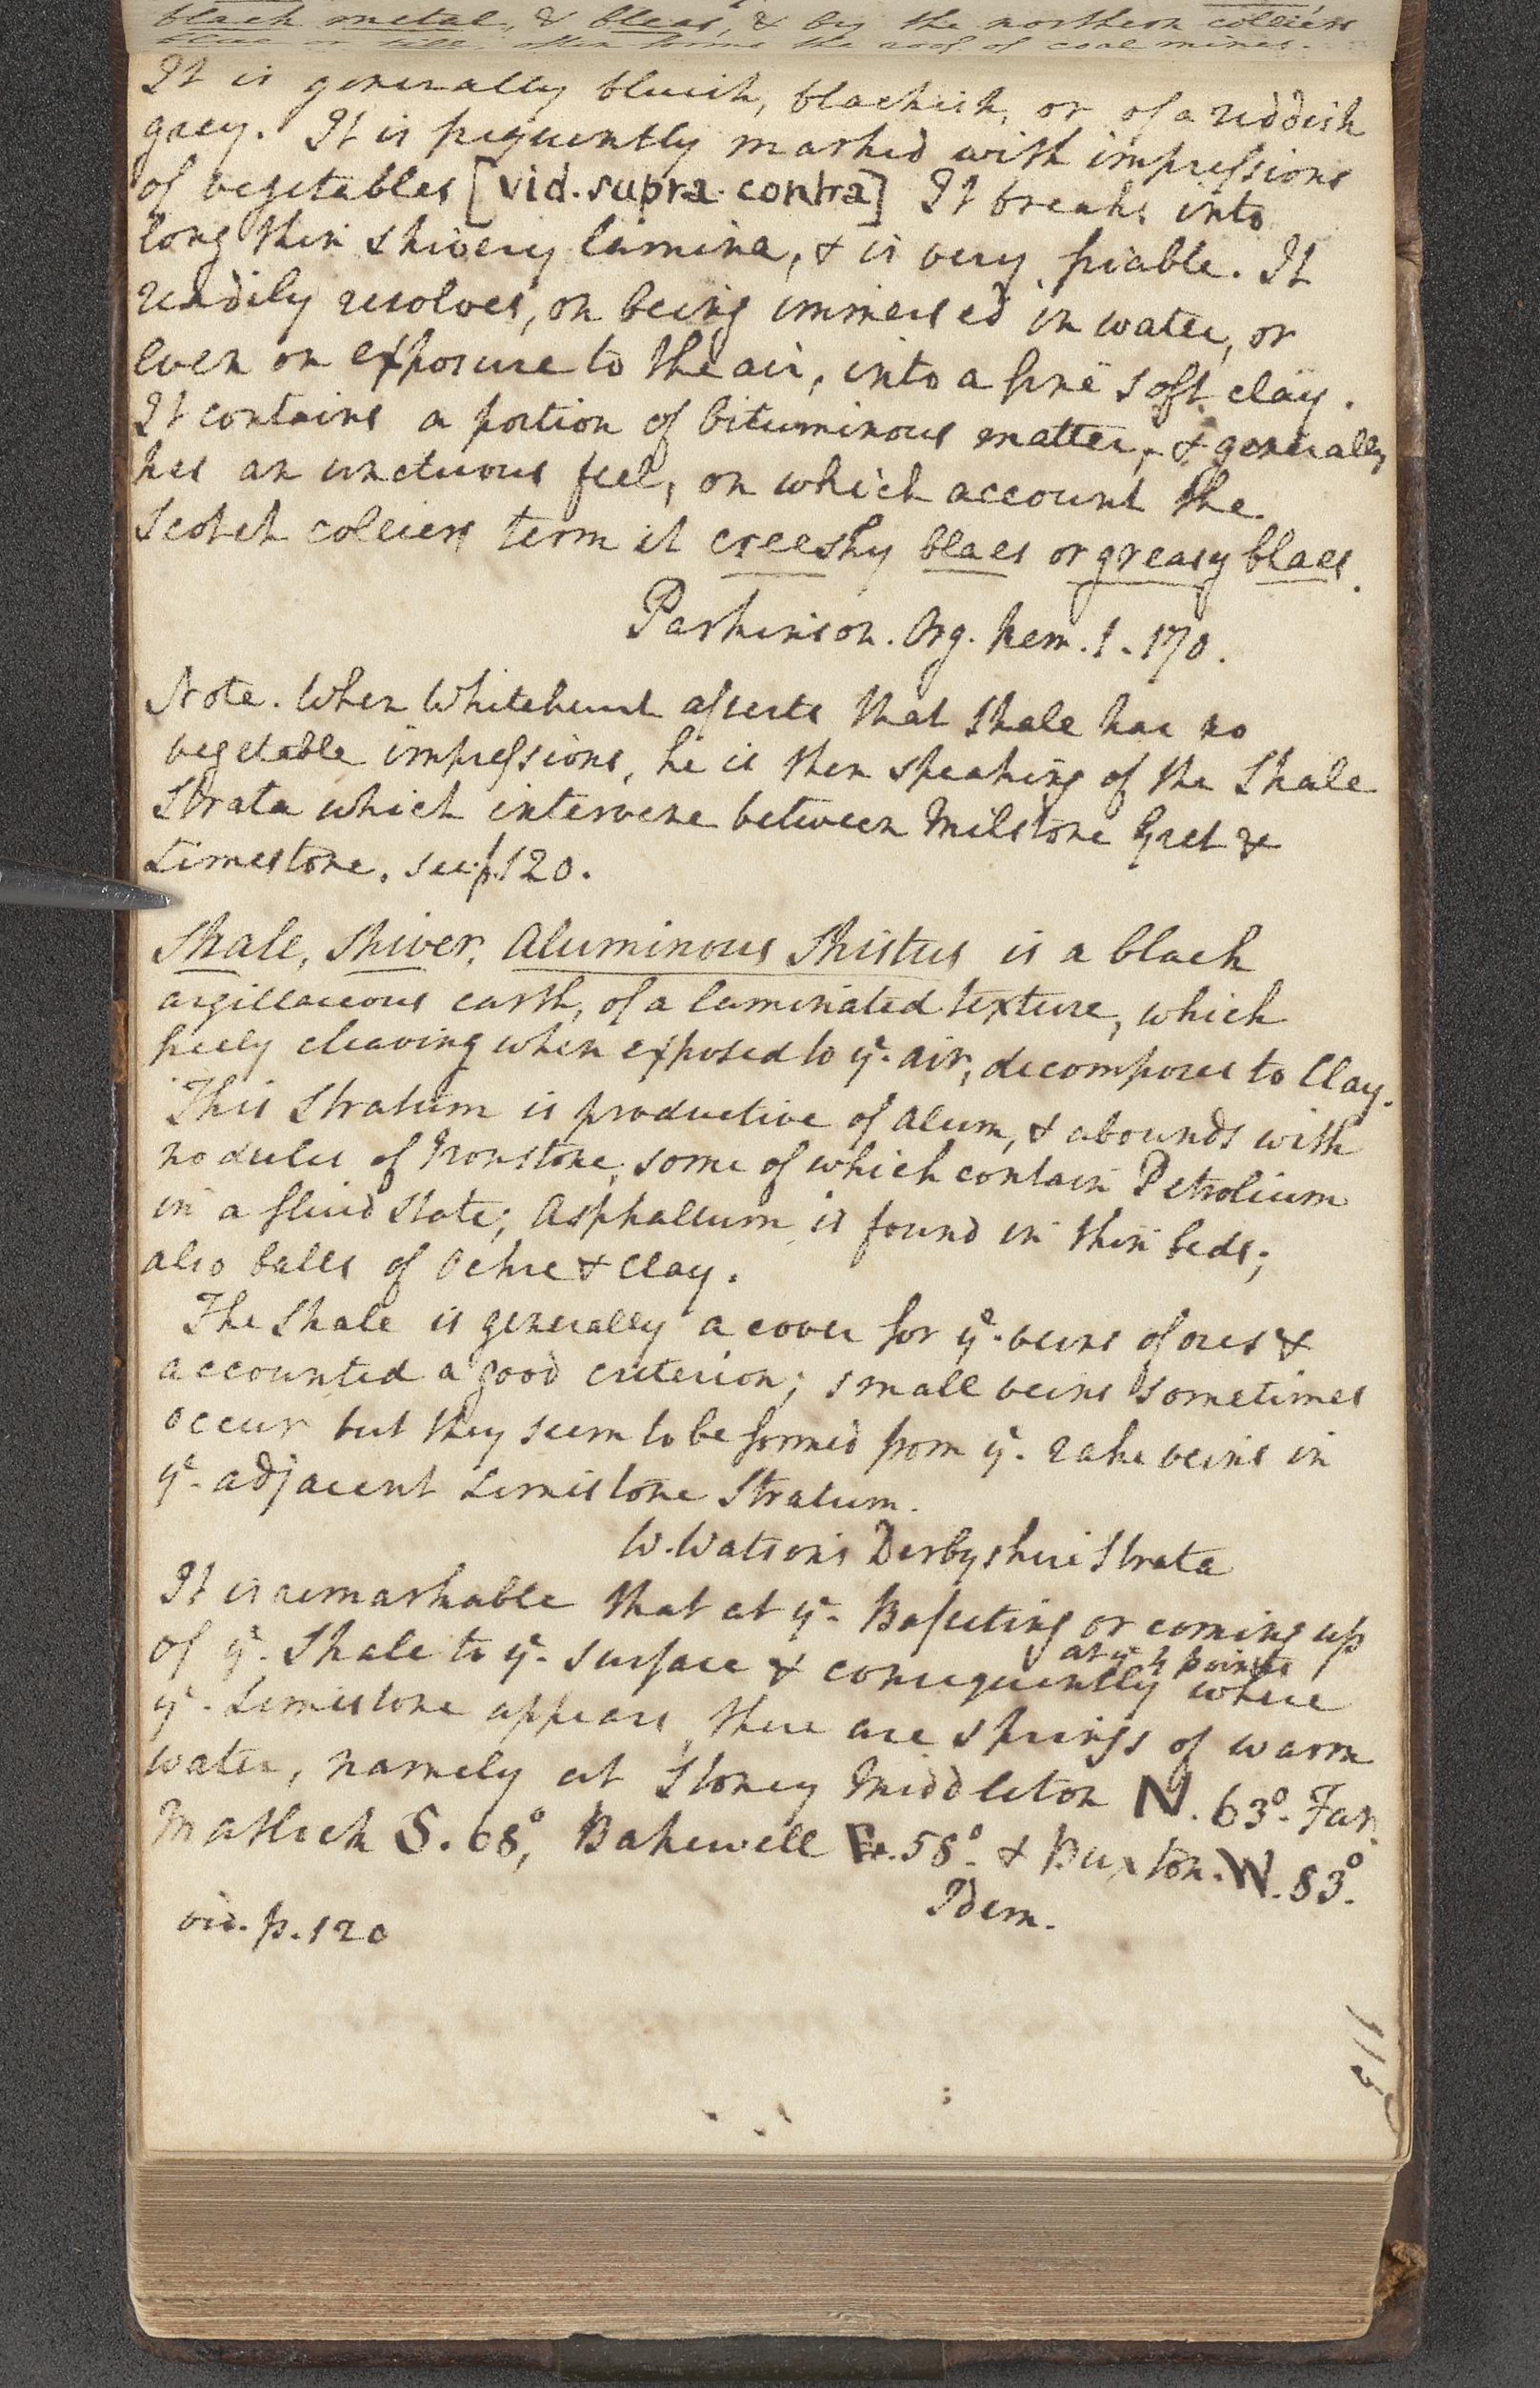 black metal, & bleas, & by the northern colliers
blue or till, often forms the roof of coal mines.
It is generally bluish, blackish, or of a reddish
grey. It is frequently marked with impressions
of vegetables [vid. supra. contra] It breaks into
long thin shivery lamina, & is very friable. It
readily resolves, on being immersed in water, or
even on exposure to the air, into a fine soft clay.
It contains a portion of bituminous matter, & generally
has an unctuous feel, on which account the
Scotch colliers term it creeshy blaes or greasy blaes.
Parkinson. Org. Rem. 1. 170.
Note. When Whitehurst asserts that Shale has no
vegetable impressions, he is then speaking of the Shale
Strata which intervene between Milstone Gret &
Limestone. see p. 120.
Shale, Shiver, Aluminous Shistus is a black
argillaceous earth, of a laminated texture, which
freely cleaving when exposed to ye. air, decomposes to Clay.
This Stratum is productive of Alum, & abounds with
nodules of Ironstone, some of which contain Petrolium
in a fluid State; Asphaltum is found in thin beds;
also balls of Ochre & Clay.
The Shale is generally a cover for ye. veins of ores &
accounted a good criterion; small veins sometimes
occur but they seem to be formed from ye. rake veins in
ye. adjacent Limestone Stratum.
W. Watson's Derbyshire Strata
It is remarkable that at ye. Basseting or coming up
of ye. Shale to ye. surface & consequently where
at ye 4 points
ye. Limestone appears, there are springs of warm
water, namely at Stoney Middleton N. 63°. Far.
Matlock S. 68°, Bakewell E. 58°. & Buxton. W. 83°.
Idem.
vid. p. 120